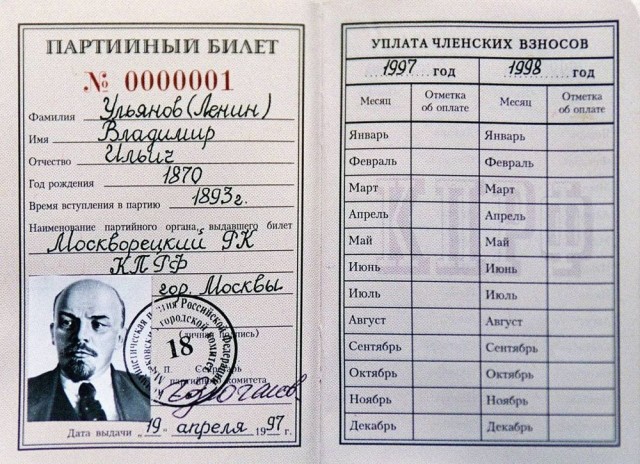 ПАРТИЙНЫЙ БИЛЕТ
№ 0000001
Фамилия Ульянов (Ленин)
Имя Владимир
Отчество Ильич
Год рождения 1870
Время вступления в партию 1893г.
Наименование партийного органа, выдавшего билет
Москворецкий РК
КПРФ
гор. Москвы
(личная подпись)
18
М. П. Секретарь
партийного комитета
Дата выдачи „19" апреля 1997 г.
УПЛАТА ЧЛЕНСКИХ ВЗНОСОВ
1997 год 1998 год
Месяц Отметка об оплате Месяц Отметка об оплате
Январь Январь
Февраль Февраль
Март Март
Апрель Апрель
Май Май
Июнь Июнь
Июль Июль
Август Август
Сентябрь Сентябрь
Октябрь Октябрь
Ноябрь Ноябрь
Декабрь Декабрь
КПРФ